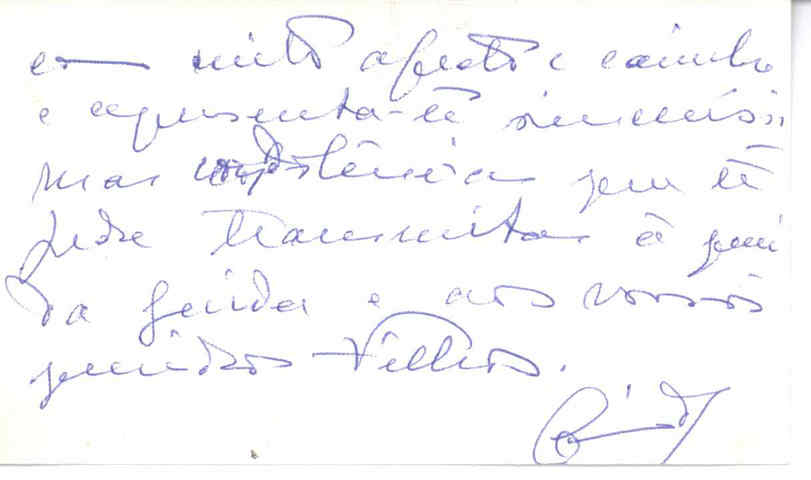 com muito afecto e carinho
e apresenta-te sincerissi
mas condolências que te
pede transmitas à queri
da Guida e aos vossos
queridos filhos.